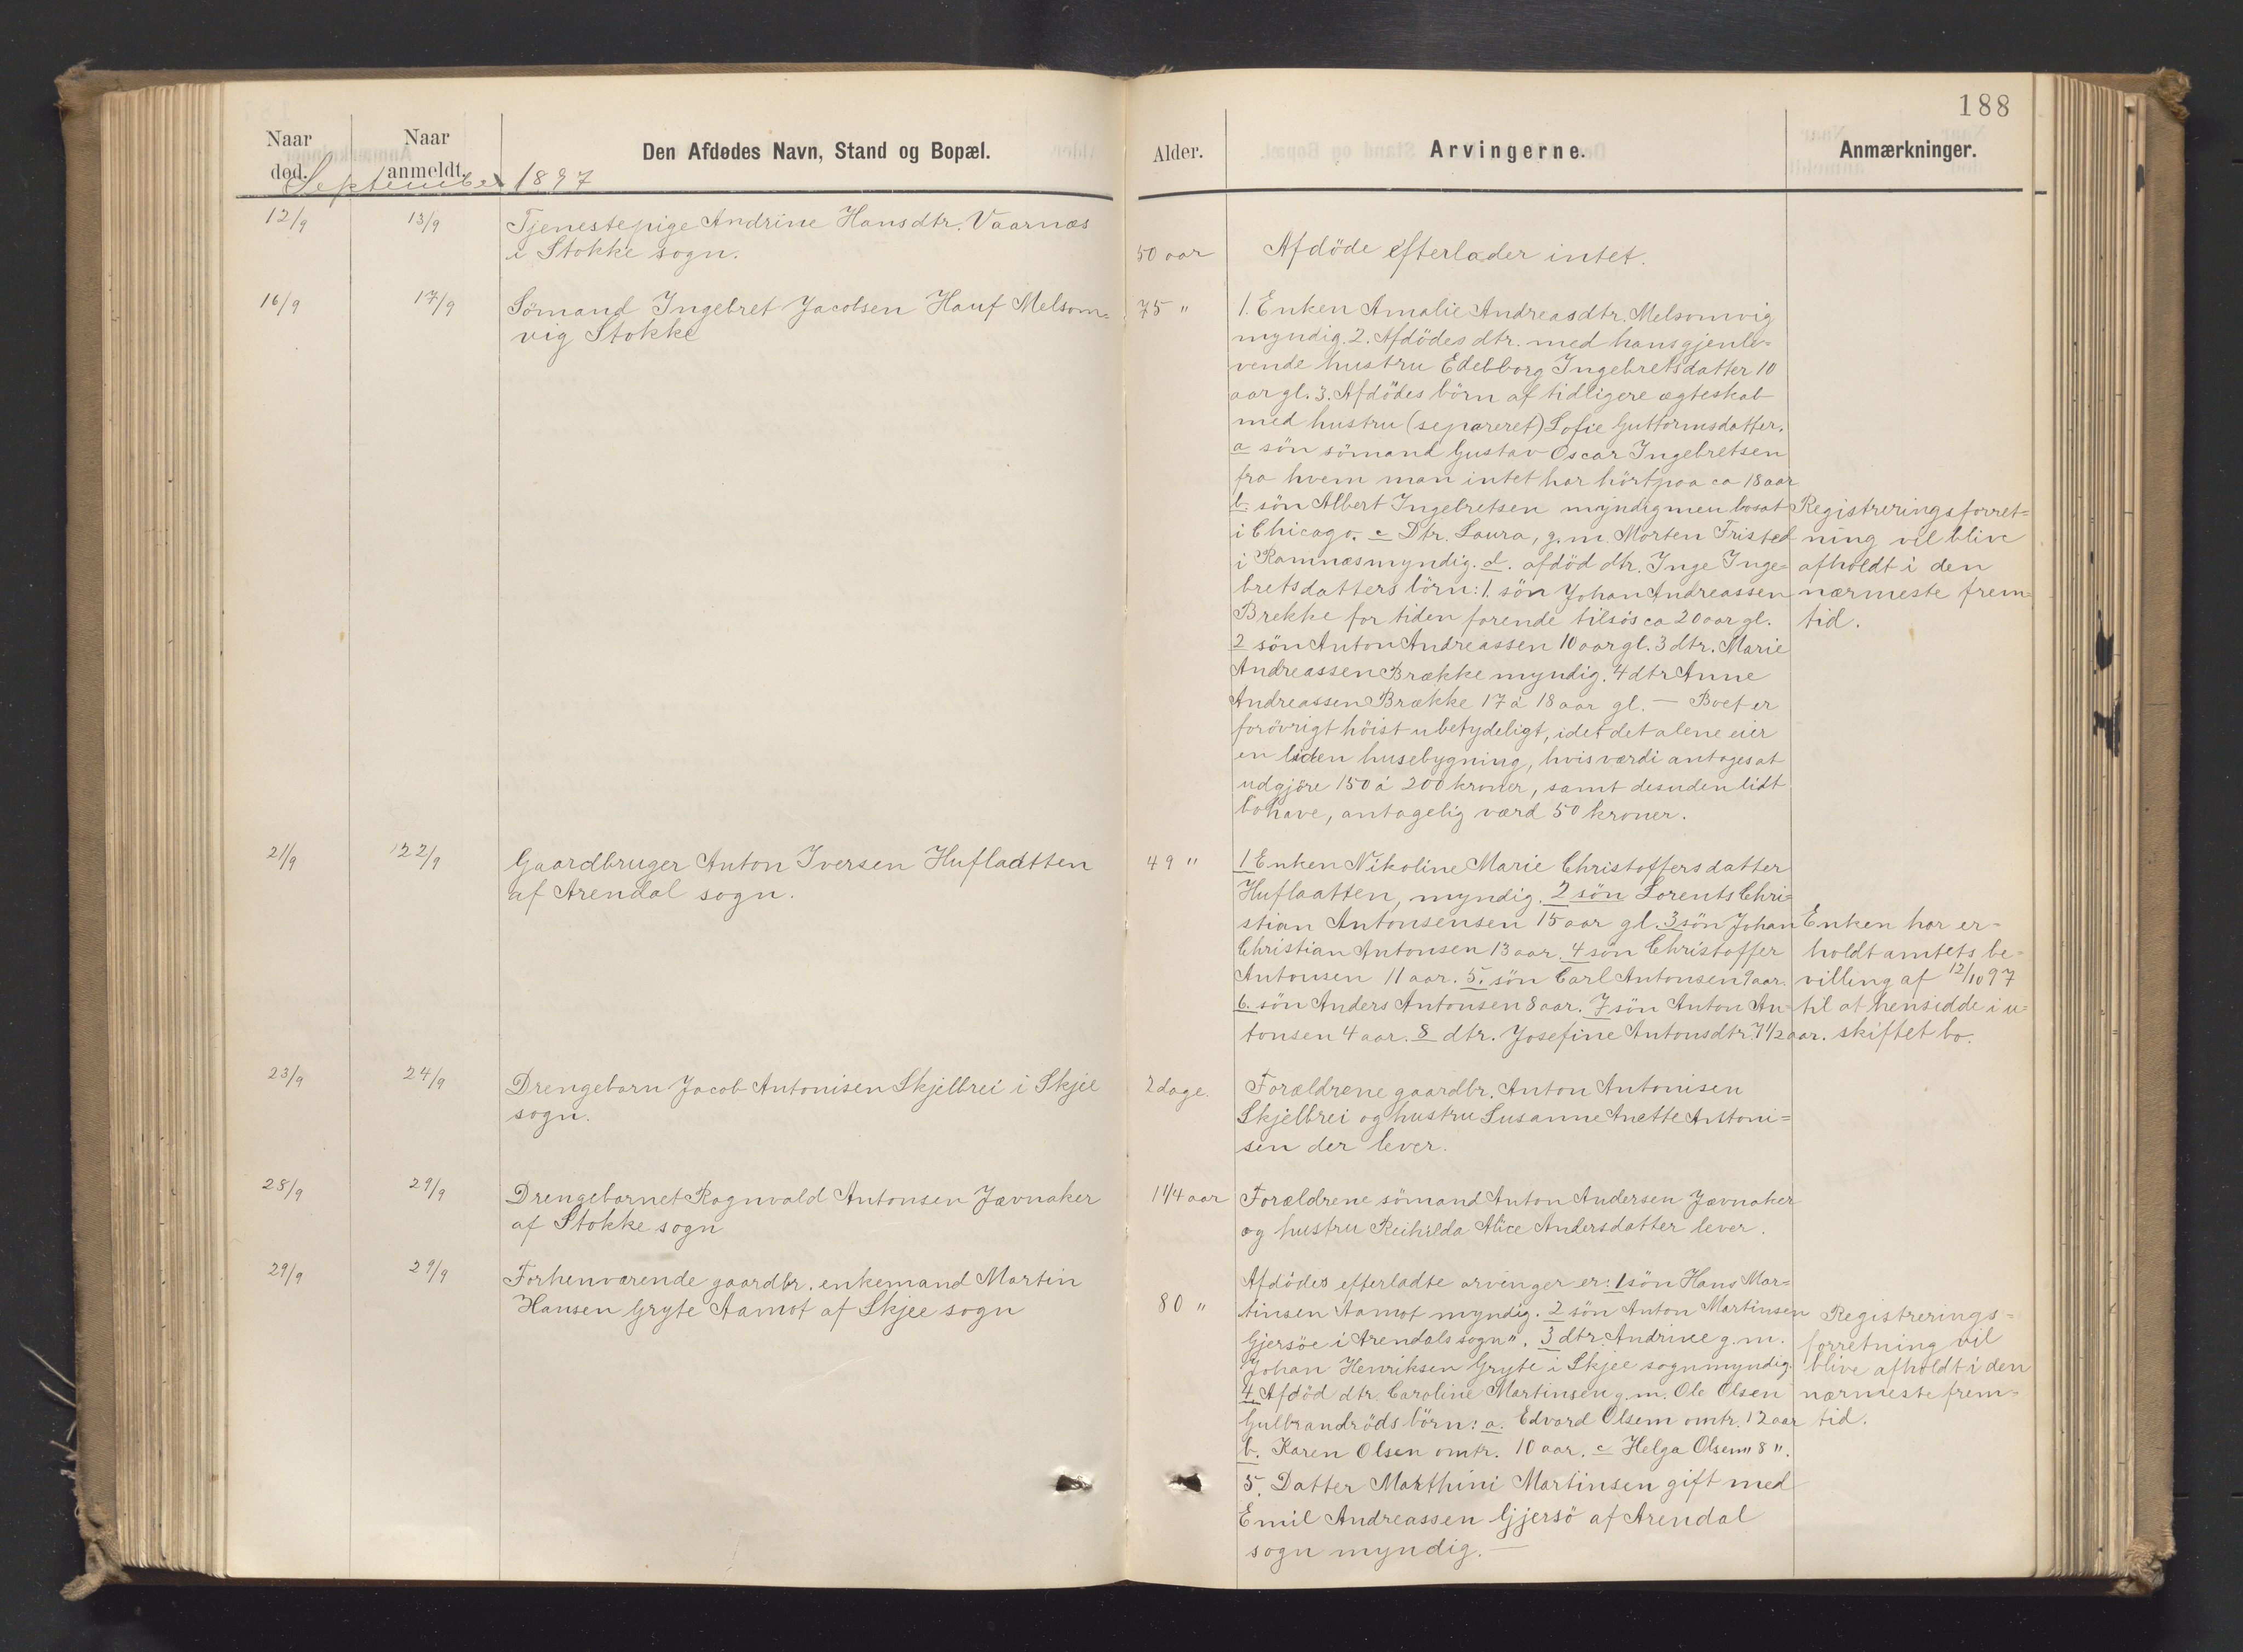 188
Naar død.
Naar anmeldt.
Den Afdødes Navn, Stand og Bopæl.
Alder.
Arvingerne.
Anmærkninger.
September 1897
12/9
13/9
Tjenestepige Andrine Hansdtr. Vaarnæs
i Stokke sogn.
50 aar
Afdöde efterlader intet.
16/9
17/9
Sömand Ingebret Jacobsen Hauf Melsom=
vig Stokke
75 "
1. Enken Amalie Andreasdtr. Melsomvig
myndig. 2. Afdödes dtr. med hans gjenle=
vende hustru Edelborg Ingebretsdatter 10
aar gl. 3. Afdödes börn af tidligere ægteskab
med hustru (separeret) Sofie Guttormsdatter.
a sön sömand Gustav Oscar Ingebretsen
fra hvem man intet har hört paa ca 18 aar
b. sön Albert Ingebretsen myndig men bosat
i Chicago. c Dtr. Laura, g. m. Morten Fristed
i Ramnæs myndig. d. afdöd dtr. Inge Inge=
bretsdatters börn: 1. sön Johan Andreassen
Brekke for tiden farende tilsös ca 20 aar gl.
2 sön Anton Andreassen 10 aar gl. 3 dtr. Marie
Andreassen Brække myndig. 4 dtr Anne
Andreassen Brække 17 à 18 aar gl. — Boet er
forövrigt höist ubetydeligt, idet det alene eier
en liden husebygning, hvis værdi antages at
udgjöre 150 à 200 kroner, samt desuden lidt
bohave, antagelig værd 50 kroner.
Registreringsforret=
ning vil blive
afholdt i den
nærmeste frem=
tid.
21/9
22/9
Gaardbruger Anton Iversen Huflaatten
af Arendal sogn.
49 "
1 Enken Nikoline Marie Christoffersdatter
Huflaatten, myndig. 2 sön Lorents Chri=
stian Antonsensen 15 aar gl. 3 sön Johan
Christian Antonsen 13 aar. 4 sön Christoffer
Antonsen 11 aar. 5. sön Carl Antonsen 9 aar.
6. sön Anders Antonsen 8 aar. 7 sön Anton An=
tonsen 4 aar. 8 dtr. Josefine Antonsdtr. 7 1/2 aar.
Enken har er=
holdt amtets be=
villing af 12/10 97
til at hensidde i u=
skiftet bo.
23/9
24/9
Drengebarn Jacob Antonisen Skjelbrei i Skjee
sogn.
2 dage.
Forældrene gaardbr. Anton Antonisen
Skjelbrei og hustru Susanne Anette Antoni=
sen der lever.
28/9
29/9
Drengebarnet Ragnvald Antonsen Jævnaker
af Stokke sogn
1 1/4 aar
Forældrene sömand Anton Andersen Jævnaker
og hustru Reihilda Alice Andersdatter lever.
29/9
29/9
Forhenværende gaardbr. enkemand Martin
Hansen Gryte Aamot af Skjee sogn
80 "
Afdödes efterladte arvinger er: 1 sön Hans Mar=
tinsen Aamot myndig. 2 sön Anton Martinsen
Gjersöe i Arendals sogn ". 3 dtr. Andrine g. m.
Johan Henriksen Gryte i Skjee sogn myndig.
4. Afdöd dtr. Caroline Martinsen g. m. Ole Olsen
Gulbrandröds börn: a. Edvard Olsem omtr. 12 aar
b. Karen Olsen omtr. 10 aar. c Helga Olsen " 8 ".
5. Datter Marthini Martinsen gift med
Emil Andreassen Gjersö af Arendal
sogn myndig. —
Registrerings=
forretning vil
blive afholdt i den
nærmeste frem=
tid.